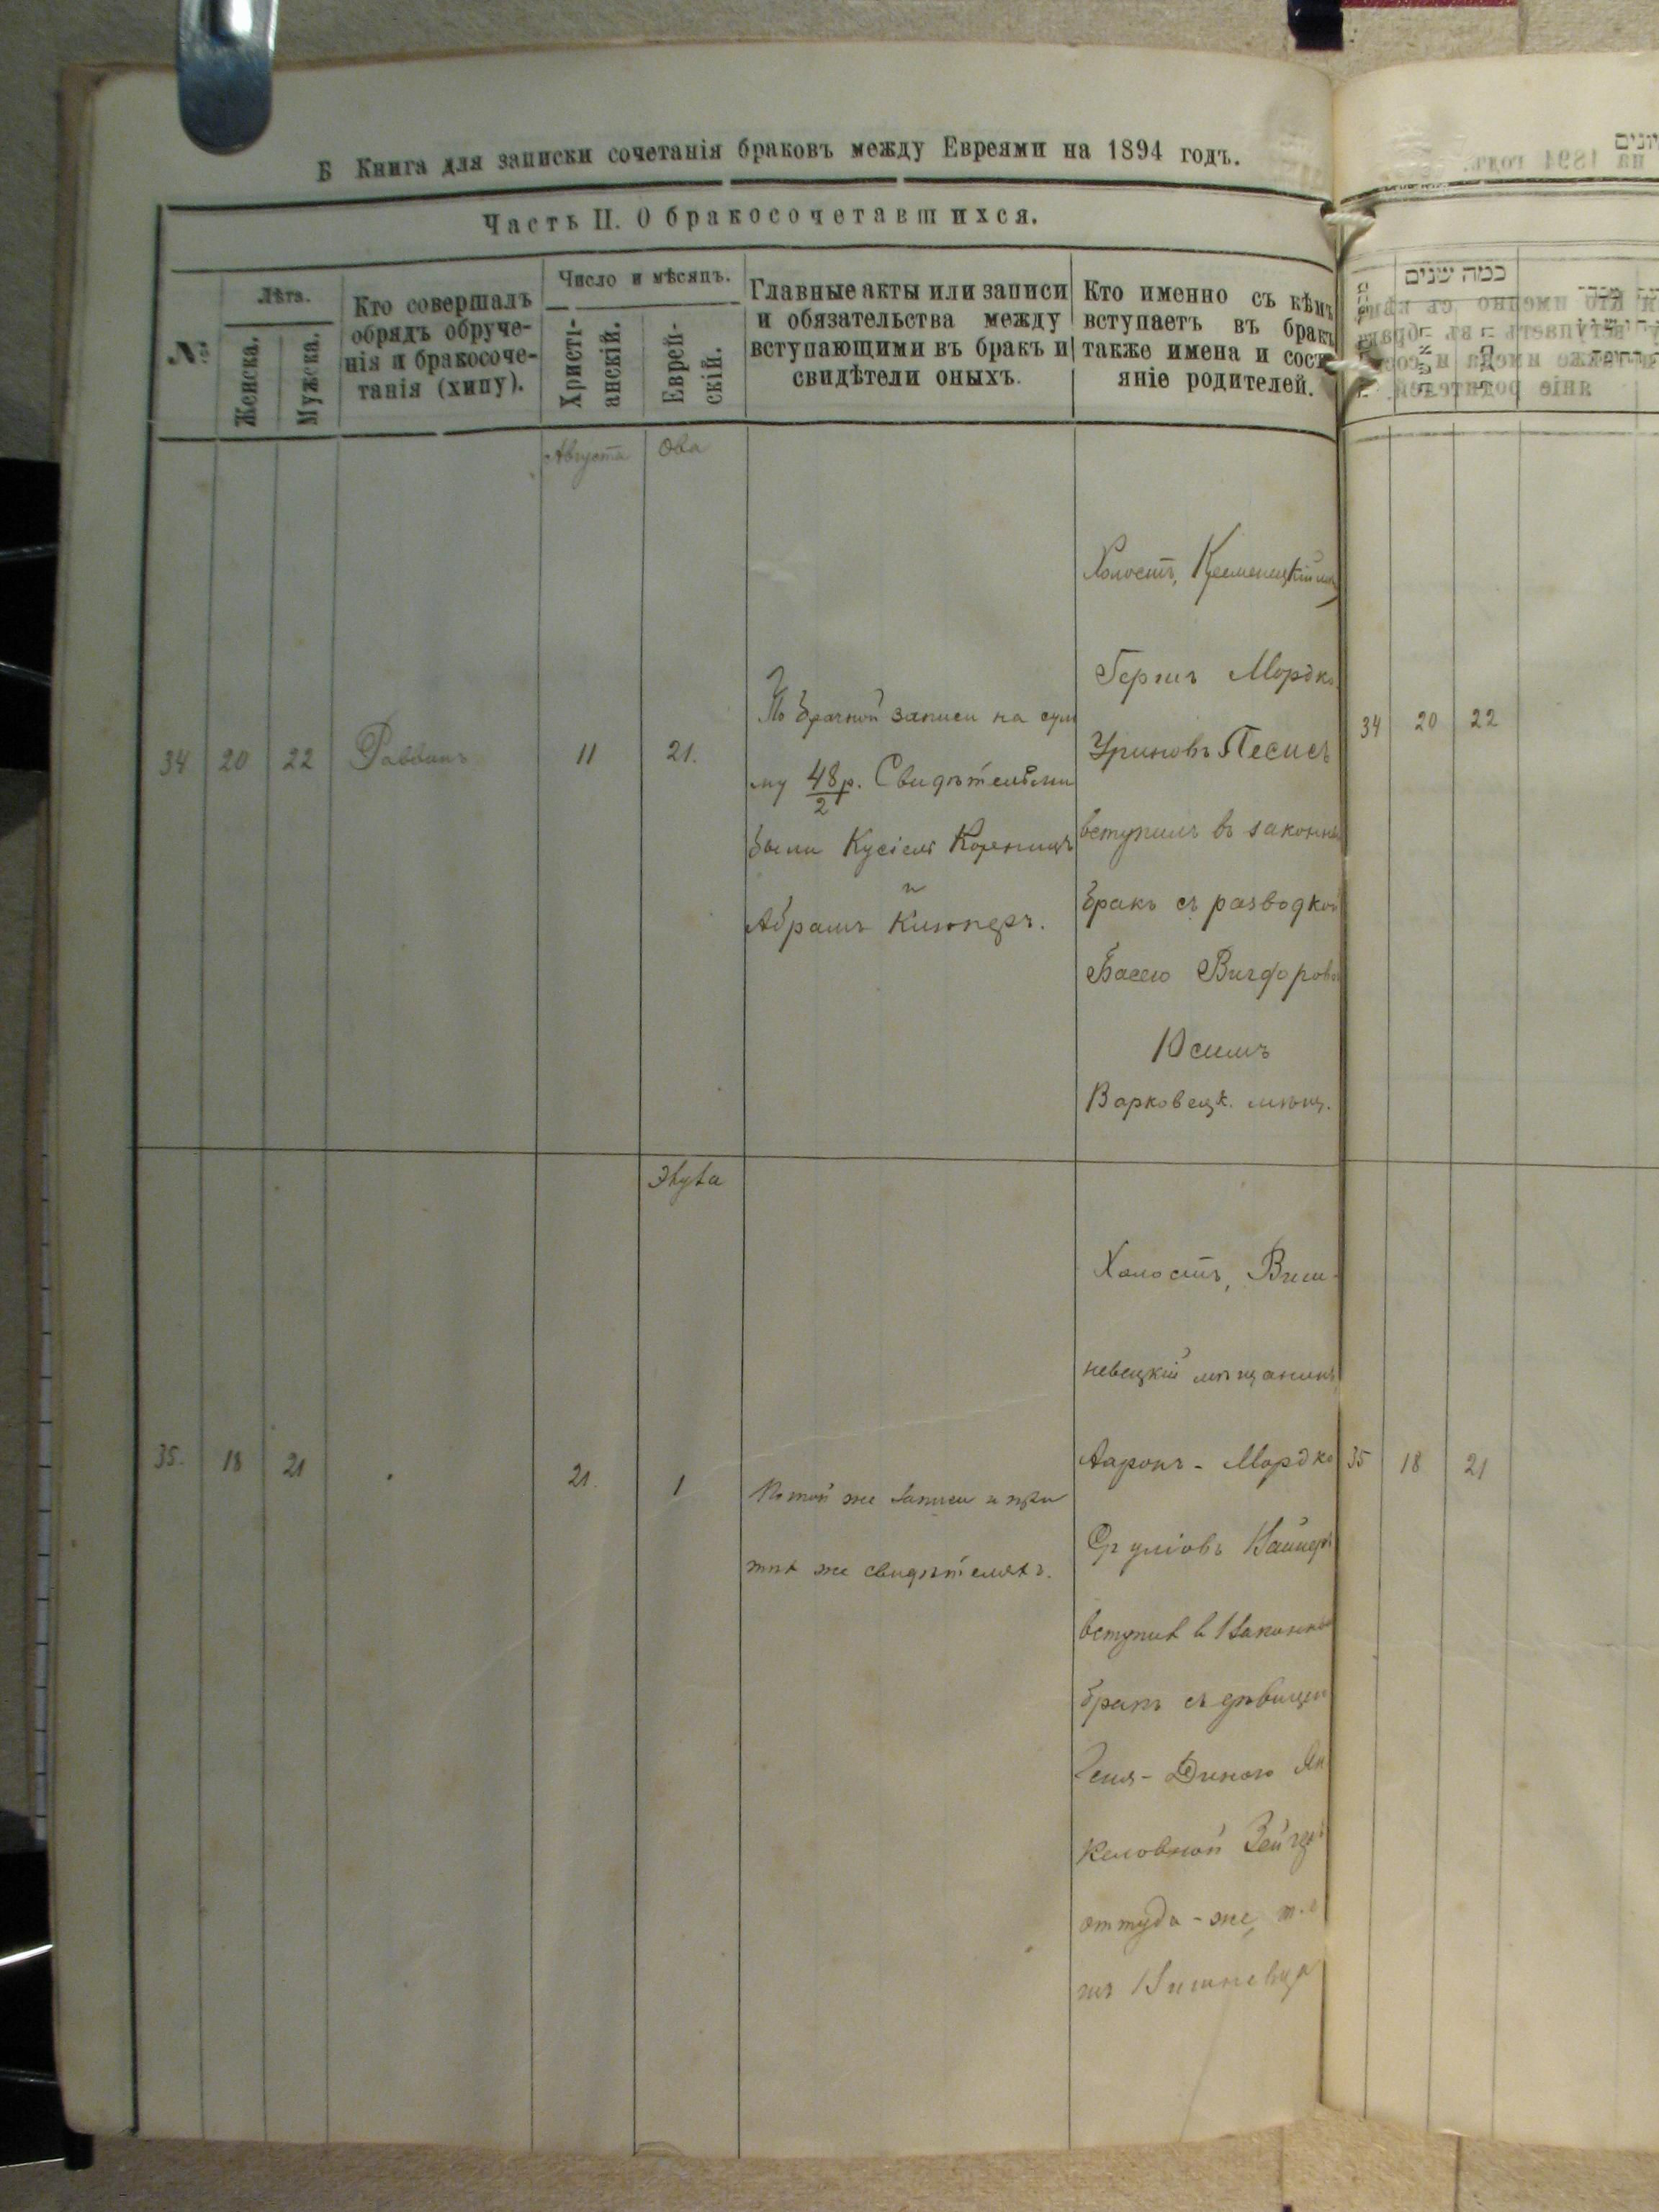 Б Книга для записки сочетанія браковъ между Евреями на 1894 годъ.
Часть II. О бракосочетавшихся.
№
Лѣта.
Женска.
Мужска.
Кто совершалъ
обрядъ обруче-
нія и бракосоче-
танія (хипу).
Число и мѣсяцъ.
Христі-
анскій.
Еврей-
скій.
Главные акты или записи
и обязательства между
вступающими въ бракъ и
свидѣтели оныхъ.
Кто именно съ кѣмъ
вступаетъ въ бракъ
также имена и состо
яніе родителей.
Августа
Ова
34
20
22
Раввинъ
11
21.
По брачной записи на сум
му 48р./2. Свидѣтелями
были Кусіель
и
Абрамъ
Холостъ, Кременецкій мѣщ
Гершъ Мордко
Уриновъ Песисъ
вступилъ въ законный
бракъ съ разводкой
Басею Вигдоровой
Юсимъ
Варковецк. мѣщ.
Элула
35.
18
21
21.
1
По той же записи и при
тѣх же свидѣтеляхъ.
Холостъ, Виш-
невецкій мѣщанинъ
Ааронъ-Мордко
Сруліовъ
вступил в законный
бракъ съ дѣвицею
Диною Ян
келовной
оттуда-же, т.е
изъ Вишневца
כמה שנים
34
20
22
35
18
21